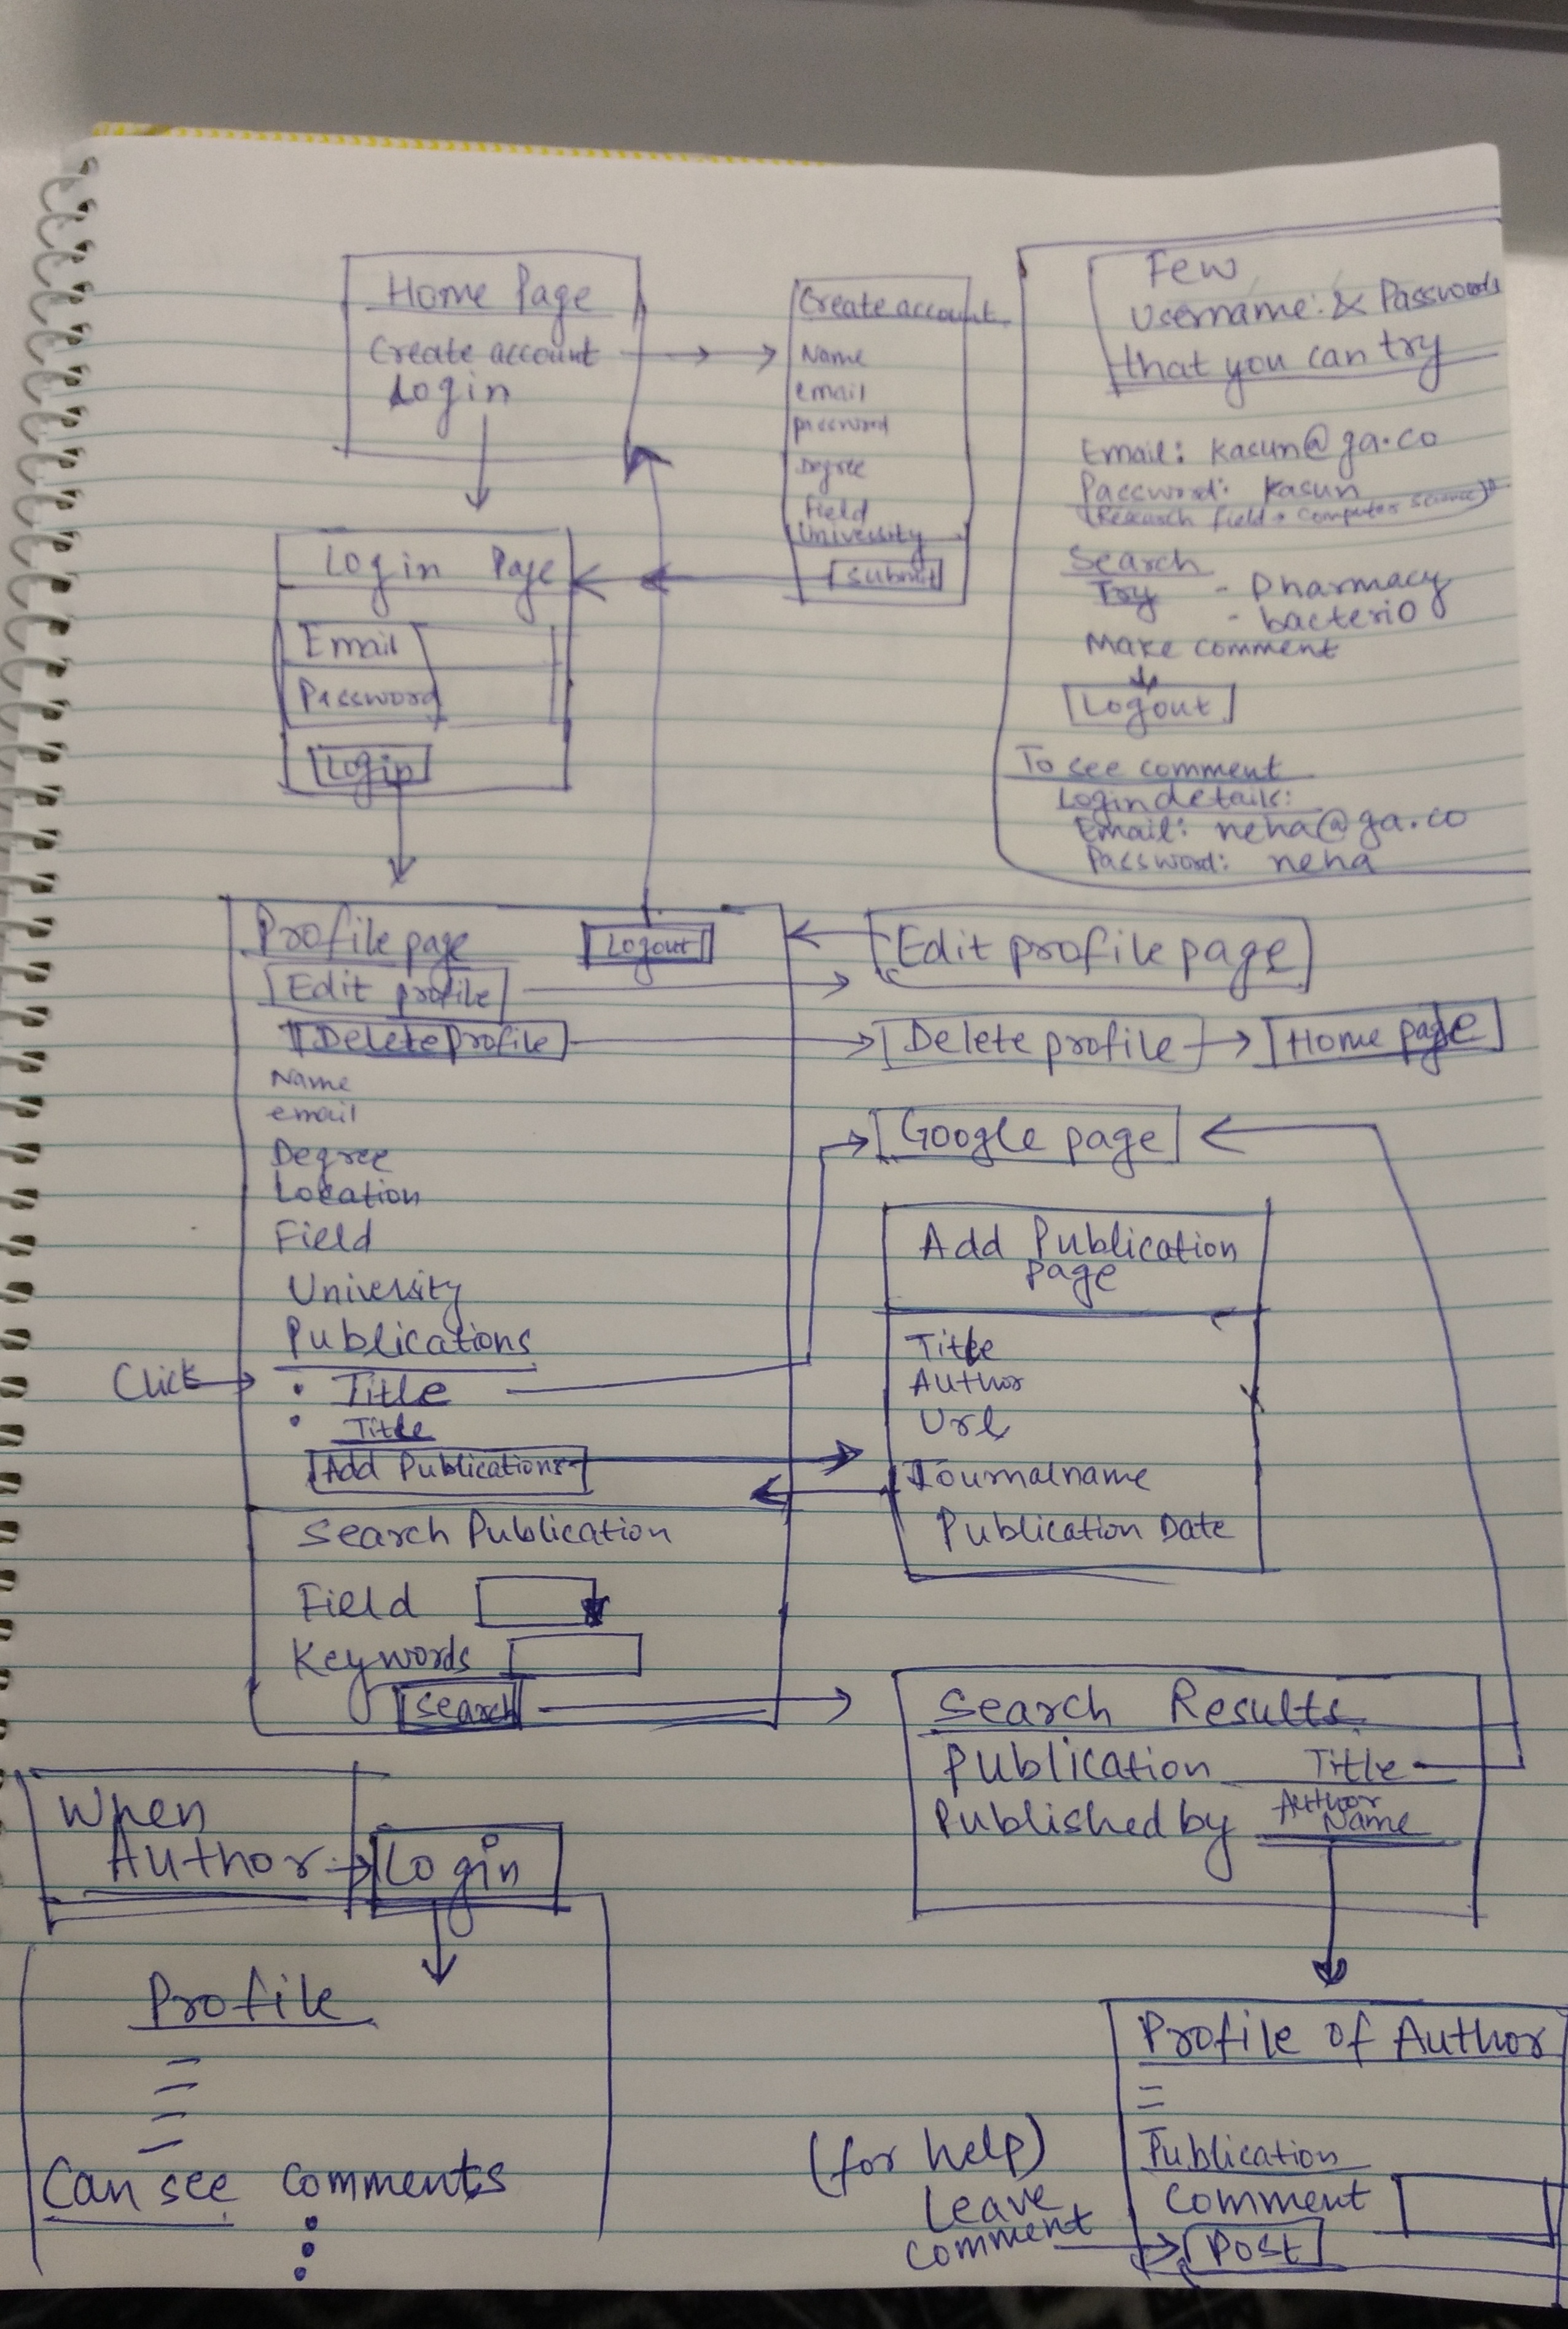 Home Page
Create account
Login
Create account
Name
email
password
Degree
Field
University
Submit
Few
Username & Passwords
that you can try
Email: kasun@ga.co
Password: kasun
(Research field → Computer Science)
Search
Try - Pharmacy
- bacterio
Make comment
Logout
To see comment
Login details:
Email: neha@ga.co
Password: neha
Login Page
Email
Password
Login
Profile page
Logout
Edit profile
Delete profile
Name
email
Degree
Location
Field
University
Publications
Click
• Title
• Title
Add Publications
Search Publication
Field
Keywords
Search
Edit profile page
Delete profile
Home page
Google page
Add Publication
Page
Title
Author
Url
Journalname
Publication Date
Search Results
Publication Title
Published by Author
Name
When
Author
Login
Profile
Can see comments
Profile of Author
Publication
Comment
Post
(for help)
Leave
comment